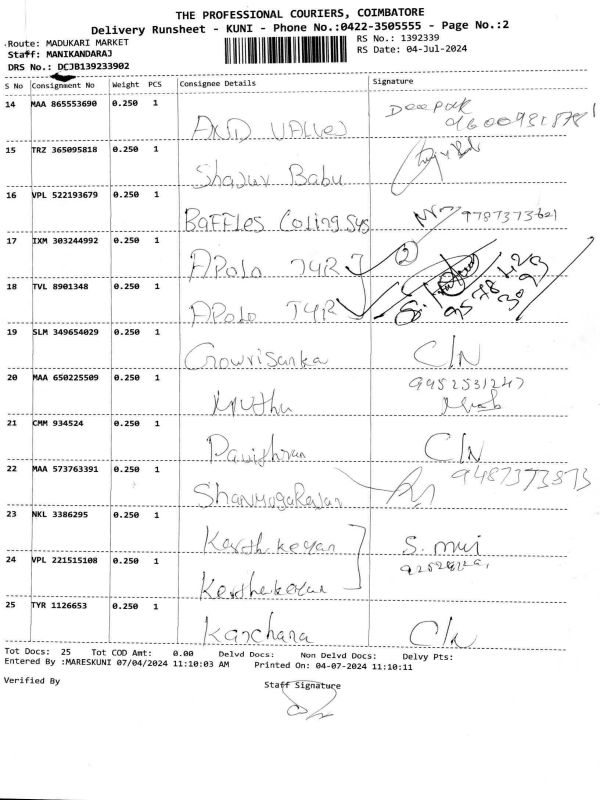 THE PROFESSIONAL COURIERS, COIMBATORE
Delivery Runsheet - KUNI - Phone No.:0422-3505555 - Page No.:2
Route: MADUKARI MARKET
RS No.: 1392339
Staff: MANIKANDARAJ
RS Date: 04-Jul-2024
DRS No.: DCJB139233902
S No Consignment No Weight PCS Consignee Details Signature
14 MAA 865553690 0.250 1 AND VALVES Deepak
15 TRZ 365095818 0.250 1 Shajuv Babu
16 VPL 522193679 0.250 1 BaFFles Coling.Sys 9787373621
17 IXM 303244992 0.250 1 APolo TYR 2
18 TVL 8901348 0.250 1 APolo TYR
19 SLM 349654029 0.250 1 Gowrisanka C/N
20 MAA 650225509 0.250 1 Muthu 9952531247
21 CMM 934524 0.250 1 Pavithran C/N
22 MAA 573763391 0.250 1 ShanmugaRajan 9487373873
23 NKL 3386295 0.250 1 Karthikeyan S. mui
24 VPL 221515108 0.250 1 Karthekeyan
25 TYR 1126653 0.250 1 Kanchana C/N
Tot Docs: 25 Tot COD Amt: 0.00 Delvd Docs: Non Delvd Docs: Delvy Pts:
Entered By :MARESKUNI 07/04/2024 11:10:03 AM Printed On: 04-07-2024 11:10:11
Verified By
Staff Signature